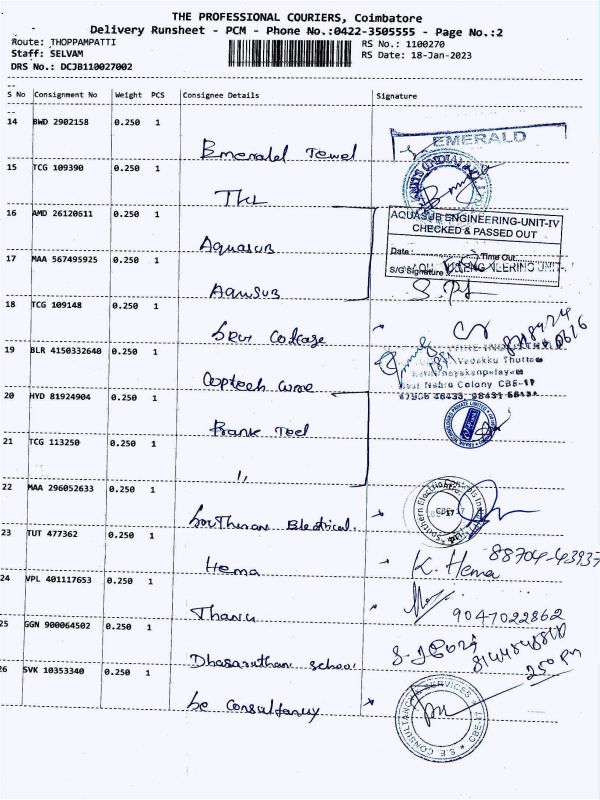 THE PROFESSIONAL COURIERS, Coimbatore
Delivery Runsheet - PCM - Phone No.:0422-3505555 - Page No.:2
Route: THOPPAMPATTI
Staff: SELVAM
DRS No.: DCJB110027002
RS No.: 1100270
RS Date: 18-Jan-2023
S No Consignment No Weight PCS Consignee Details Signature
14 BWD 2902158 0.250 1
Emerald Jewel
EMERALD
15 TCG 109390 0.250 1
16 AMD 26120611 0.250 1
Aquasub
AQUASUB ENGINEERING-UNIT-IV
CHECKED & PASSED OUT
Date Time Out
S/G Signature
17 MAA 567495925 0.250 1
Aquasub
18 TCG 109148 0.250 1
19 BLR 4150332640 0.250 1
Vedakku Thottam
Nehru Colony CBE-17
20 HYD 81924904 0.250 1
21 TCG 113250 0.250 1
22 MAA 296052633 0.250 1
Southern Electrical
23 TUT 477362 0.250 1
Hema
K. Hema
88704-43937
24 VPL 401117653 0.250 1
Thanu
9047022862
25 GGN 900064502 0.250 1
Dhasarathan school
26 SVK 10353340 0.250 1
Se Consultancy
S.E. CONSULTANCY SERVICES
CBE-17